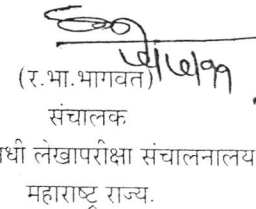 (र.भा.भागवत)
संचालक
धी लेखापरीक्षा संचालनालय
महाराष्ट्र राज्य.